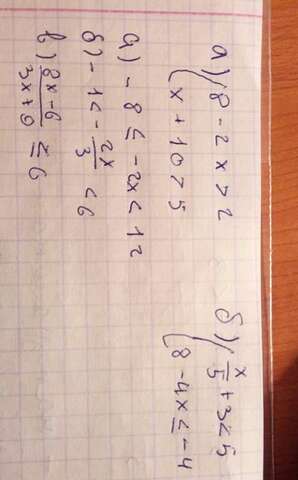 а) { 8 - 2x > 2
x + 10 > 5
б) { x/5 + 3 < 5
8 - 4x ≤ -4
а) - 8 ≤ - 2x < 12
б) - 1 < - 2x/3 < 6
в) (8x - 6)/(3x + 9) ≤ 6